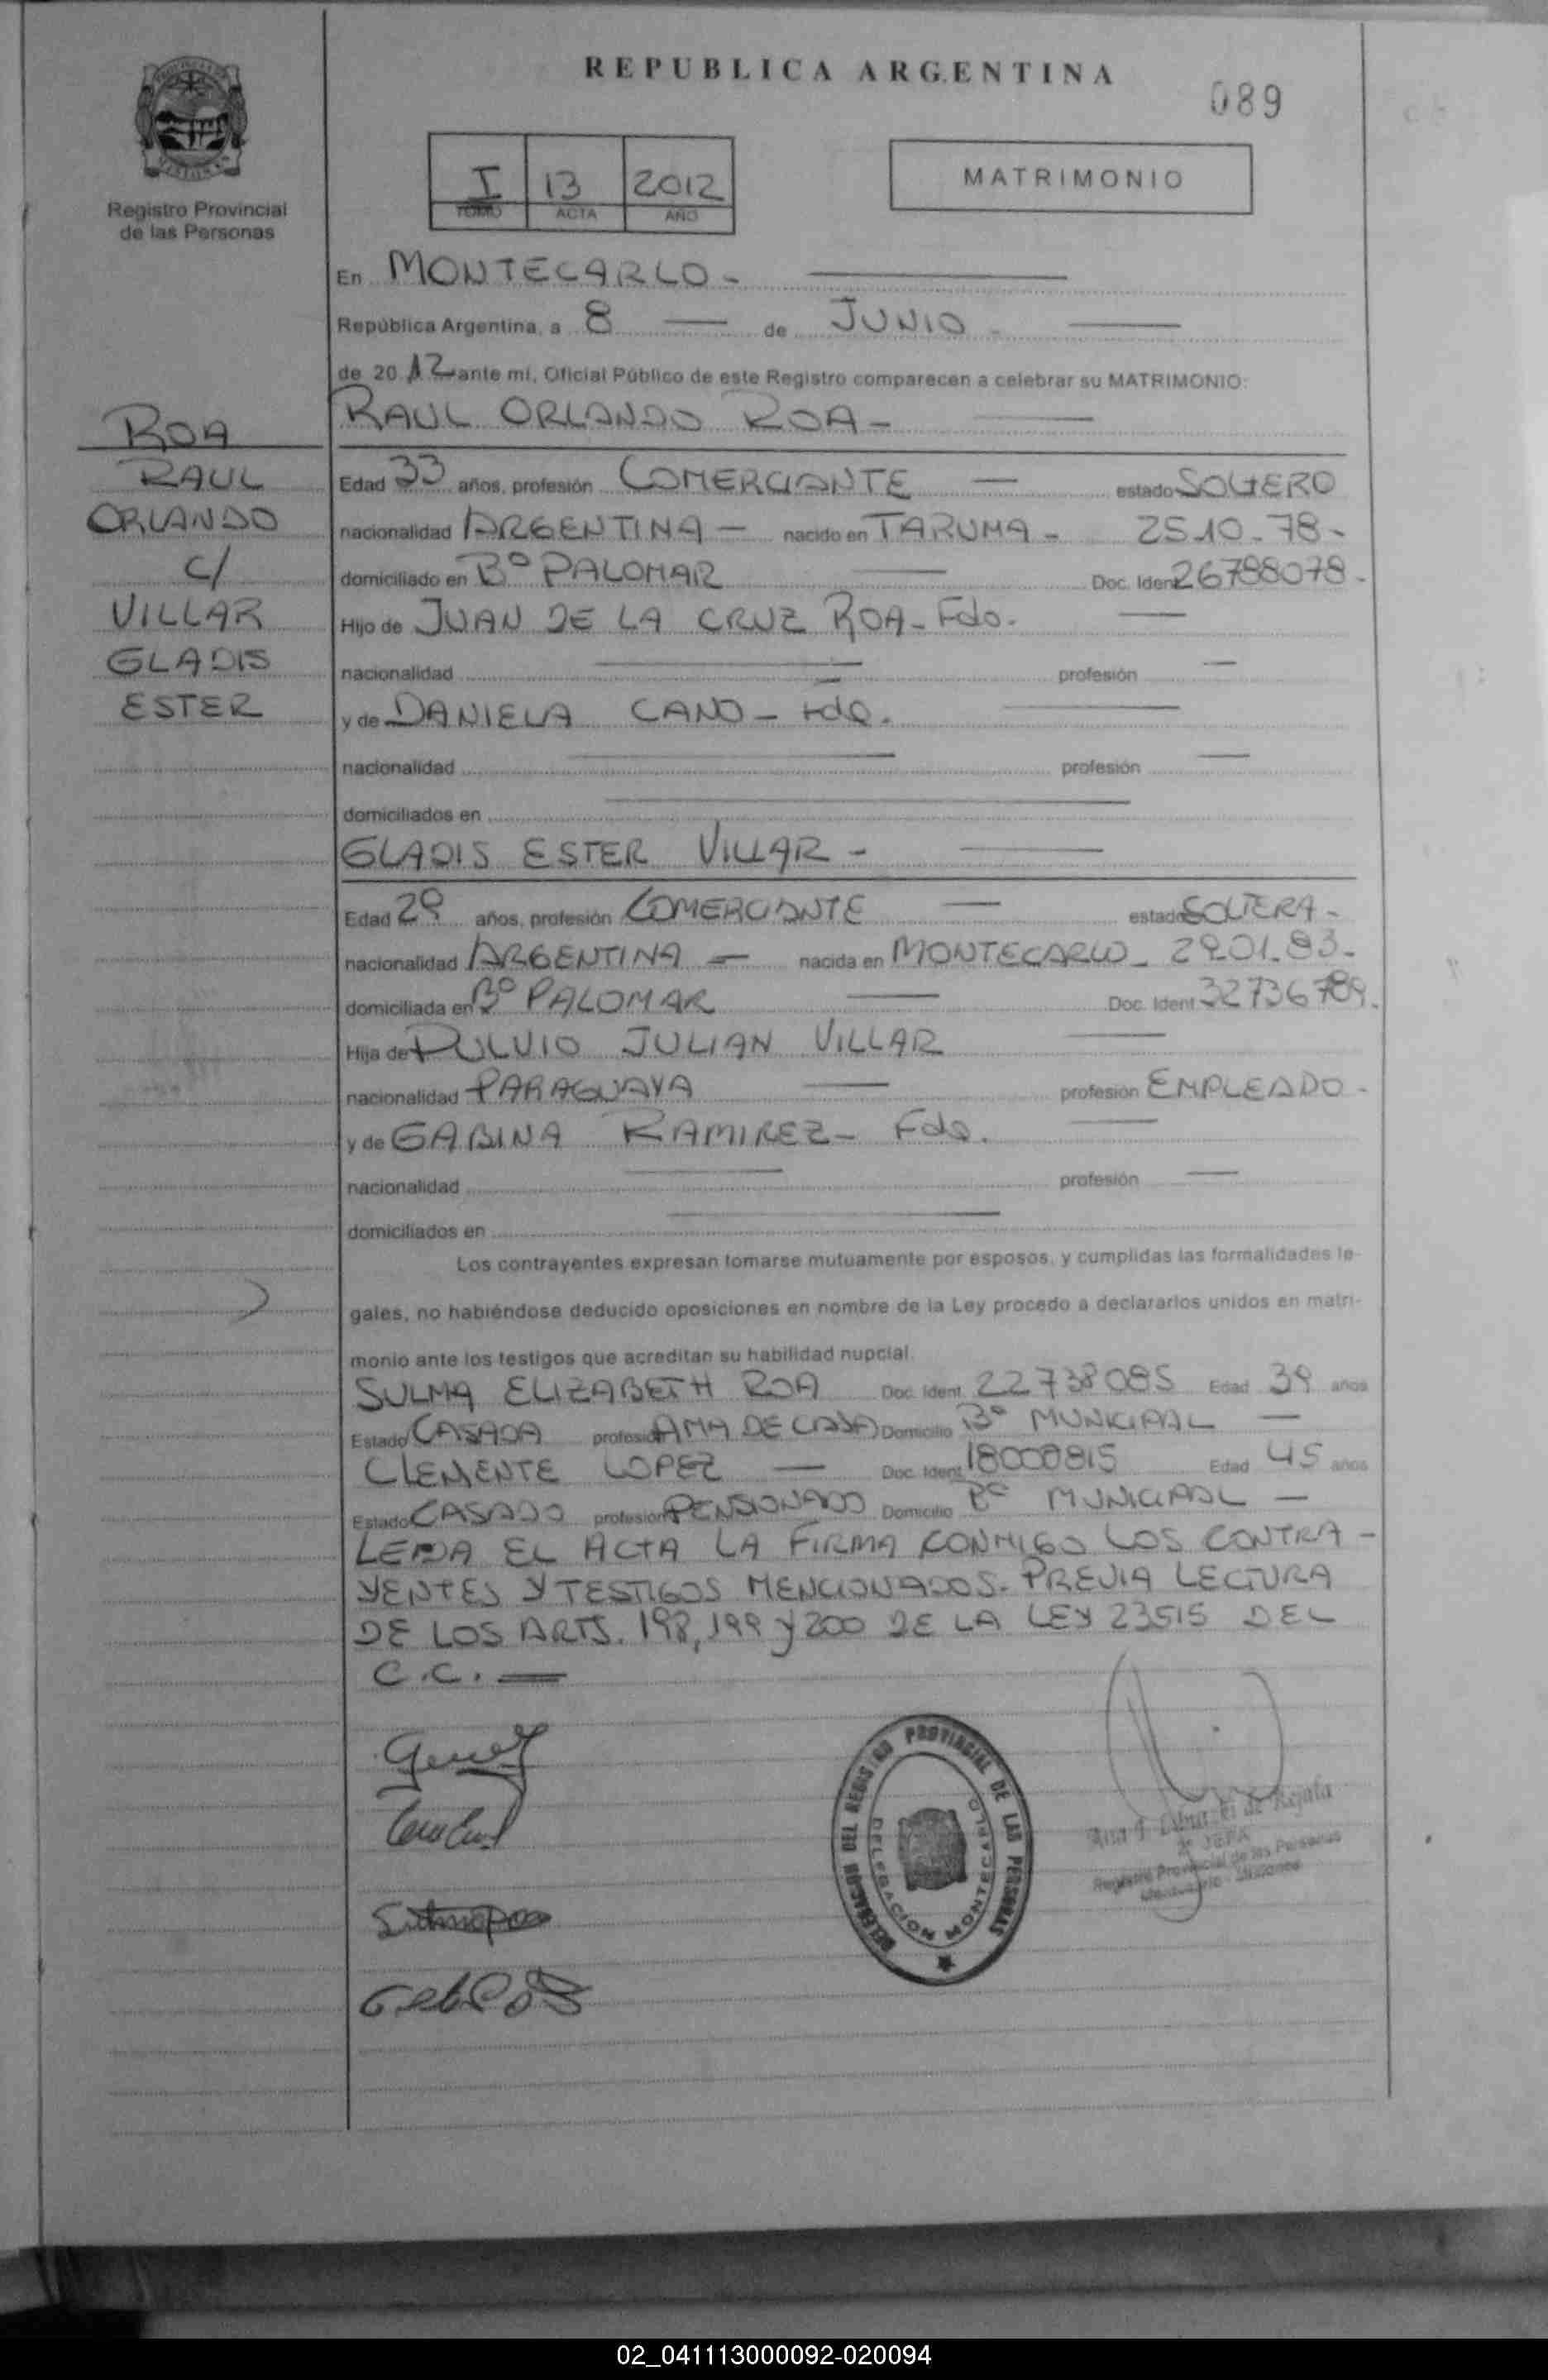 REPUBLICA ARGENTINA
089
Registro Provincial
de las Personas
I 13 2012
TOMO ACTA AÑO
MATRIMONIO
En MONTECARLO-
República Argentina, a 8 de JUNIO -
de 20 12 ante mí, Oficial Público de este Registro comparecen a celebrar su MATRIMONIO:
RAUL ORLANDO ROA-
ROA
RAUL
ORLANDO
c/
VILLAR
GLADIS
ESTER
Edad 33 años, profesión COMERCIANTE — estado SOLTERO
nacionalidad ARGENTINA — nacido en TARUMA - 25.10.78-
domiciliado en Bº PALOMAR Doc. Ident 26788078-
Hijo de JUAN DE LA CRUZ ROA- Fdo.
nacionalidad profesión
y de DANIELA CANO - Fda.
nacionalidad profesión
domiciliados en
GLADIS ESTER VILLAR -
Edad 29 años, profesión COMERCIANTE — estado SOLTERA-
nacionalidad ARGENTINA — nacida en MONTECARLO- 29.01.83-
domiciliada en Bº PALOMAR Doc. Ident 32736789.
Hija de PULVIO JULIAN VILLAR
nacionalidad PARAGUAYA profesión EMPLEADO-
y de GABINA RAMIREZ- Fda.
nacionalidad profesión
domiciliados en
Los contrayentes expresan tomarse mutuamente por esposos, y cumplidas las formalidades le-
gales, no habiéndose deducido oposiciones en nombre de la Ley procedo a declararlos unidos en matri-
monio ante los testigos que acreditan su habilidad nupcial.
SULMA ELIZABETH ROA Doc. Ident. 22738085 Edad 39 años
Estado CASADA profesión AMA DE CASA Domicilio Bº MUNICIPAL —
CLEMENTE LOPEZ — Doc. Ident. 18000815 Edad 45 años
Estado CASADO profesión PENSIONADO Domicilio Bº MUNICIPAL —
LEIDA EL ACTA LA FIRMA CONMIGO LOS CONTRA-
YENTES Y TESTIGOS MENCIONADOS- PREVIA LECTURA
DE LOS ARTS. 198, 199 Y 200 DE LA LEY 23515 DEL
C.C. —
DELEGACION DEL REGISTRO PROVINCIAL DE LAS PERSONAS
DELEGACION MONTECARLO
Registro Provincial de las Personas
02_041113000092-020094